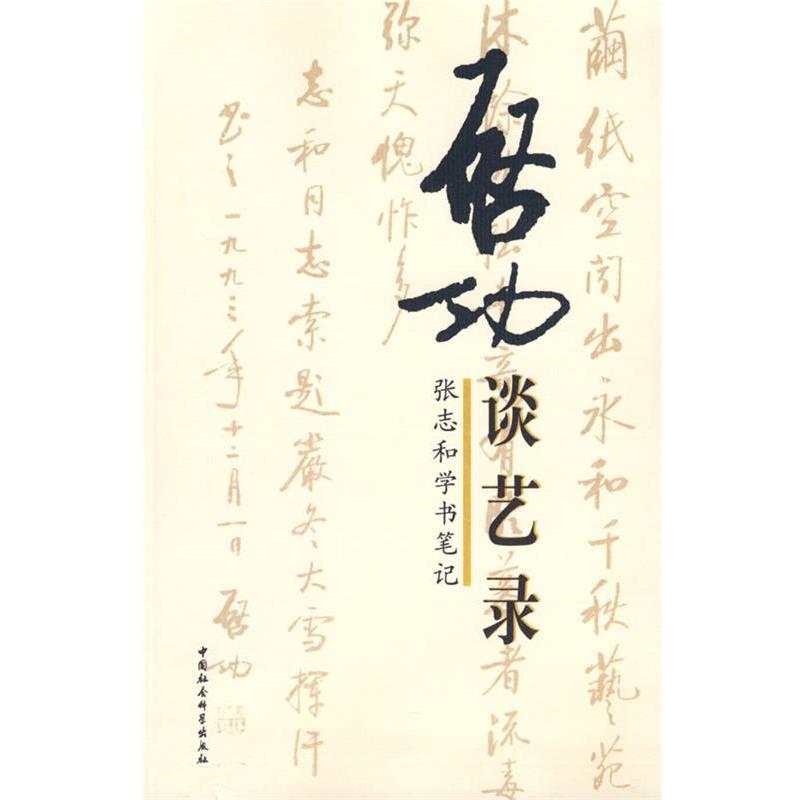 启功
谈艺录
张志和学书笔记
茧纸空闻出永和千秋艺苑
沐
者流毒
弥天愧怍多
志和同志索题严冬大雪挥汗
书之一九九三年十二月一日启功
中国社会科学出版社